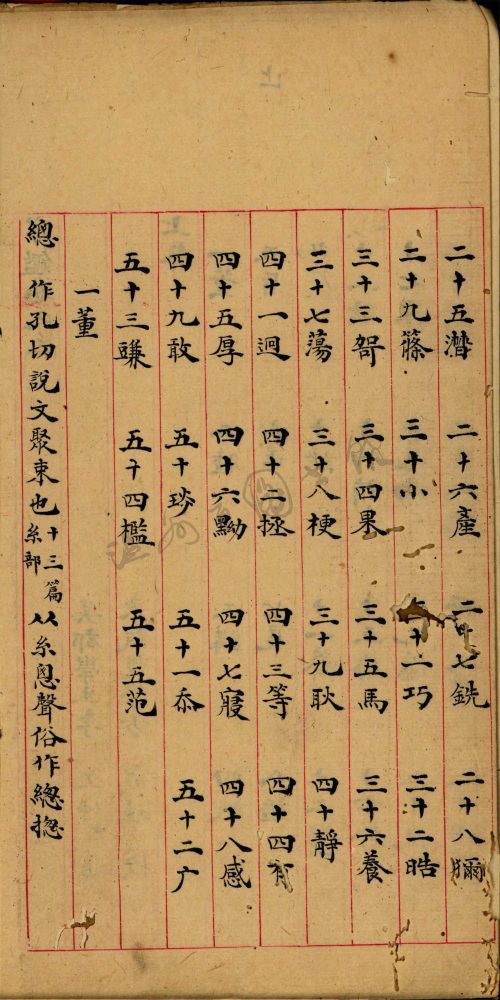 二十五潸　二十六產　二十七銑　二十八獮
二十九篠　三十小　三十一巧　三十二晧
三十三哿　三十四果　三十五馬　三十六養
三十七蕩　三十八梗　三十九耿　四十靜
四十一迥　四十二拯　四十三等　四十四有
四十五厚　四十六黝　四十七寑　四十八感
四十九敢　五十琰　五十一忝　五十二广
五十三豏　五十四檻　五十五范
一董
總　作孔切說文聚束也十三篇糸部从糸悤聲俗作緫揔